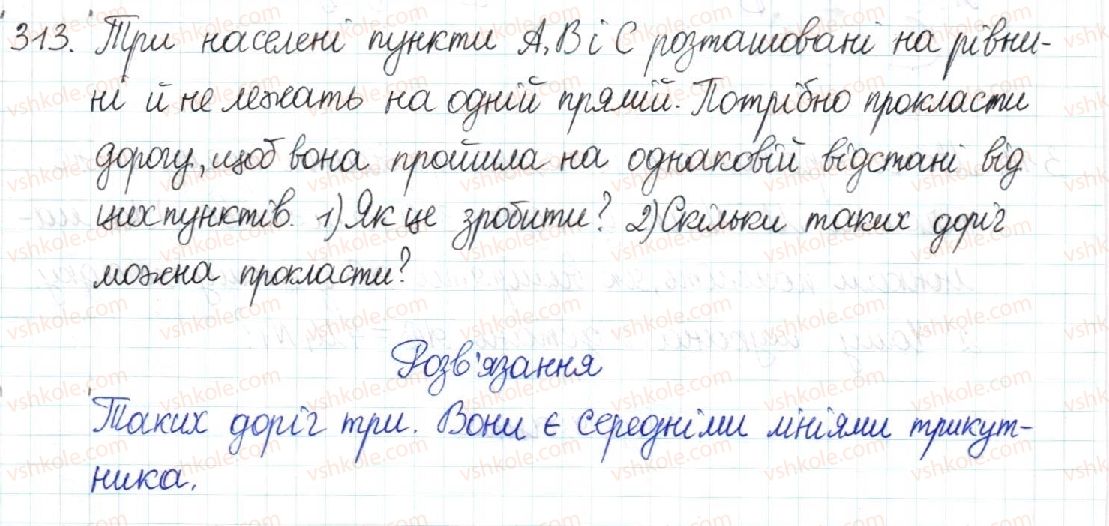 313. Три населені пункти А, В і С розташовані на рівни-
ні й не лежать на одній прямій. Потрібно прокласти
дорогу, щоб вона пройшла на однаковій відстані від
цих пунктів. 1) Як це зробити? 2) Скільки таких доріг
можна прокласти?
Розв'язання
Таких доріг три. Вони є середніми лініями трикут-
ника.